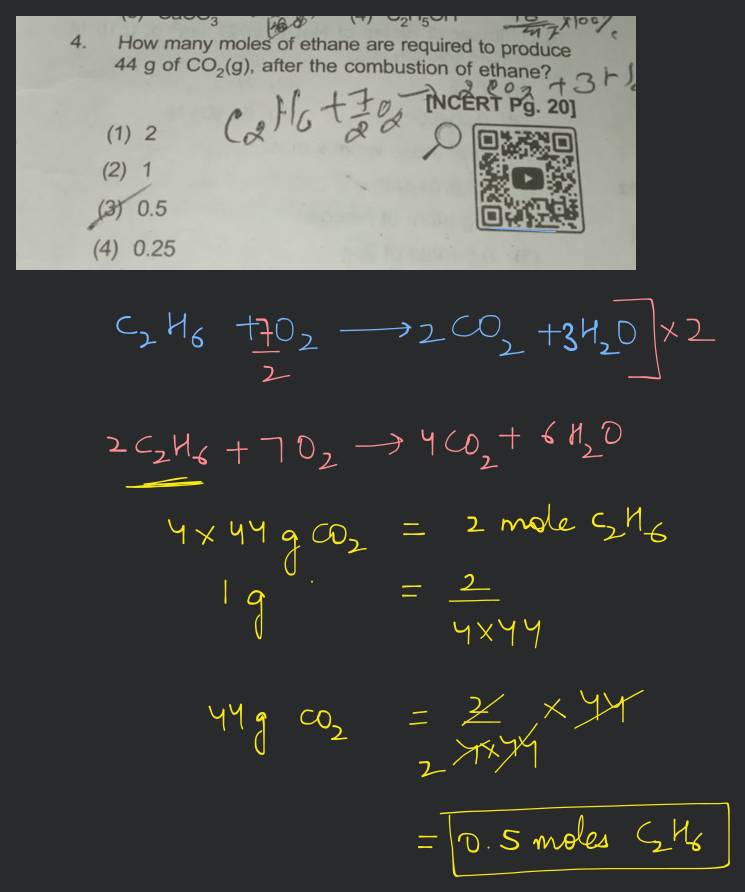 CaCO3 (4) C2H5OH
4. How many moles of ethane are required to produce
44 g of CO2(g), after the combustion of ethane?
[NCERT Pg. 20]
C2H6 + 7/2 O2 → 2CO2 + 3H2
(1) 2
(2) 1
(3) 0.5
(4) 0.25
C2H6 + 7/2 O2 → 2CO2 + 3H2O ] × 2
2C2H6 + 7O2 → 4CO2 + 6H2O
4×44 g CO2 = 2 mole C2H6
1g = 2/4×44
44g CO2 = 2/4×44 × 44
2
= 0.5 moles C2H6